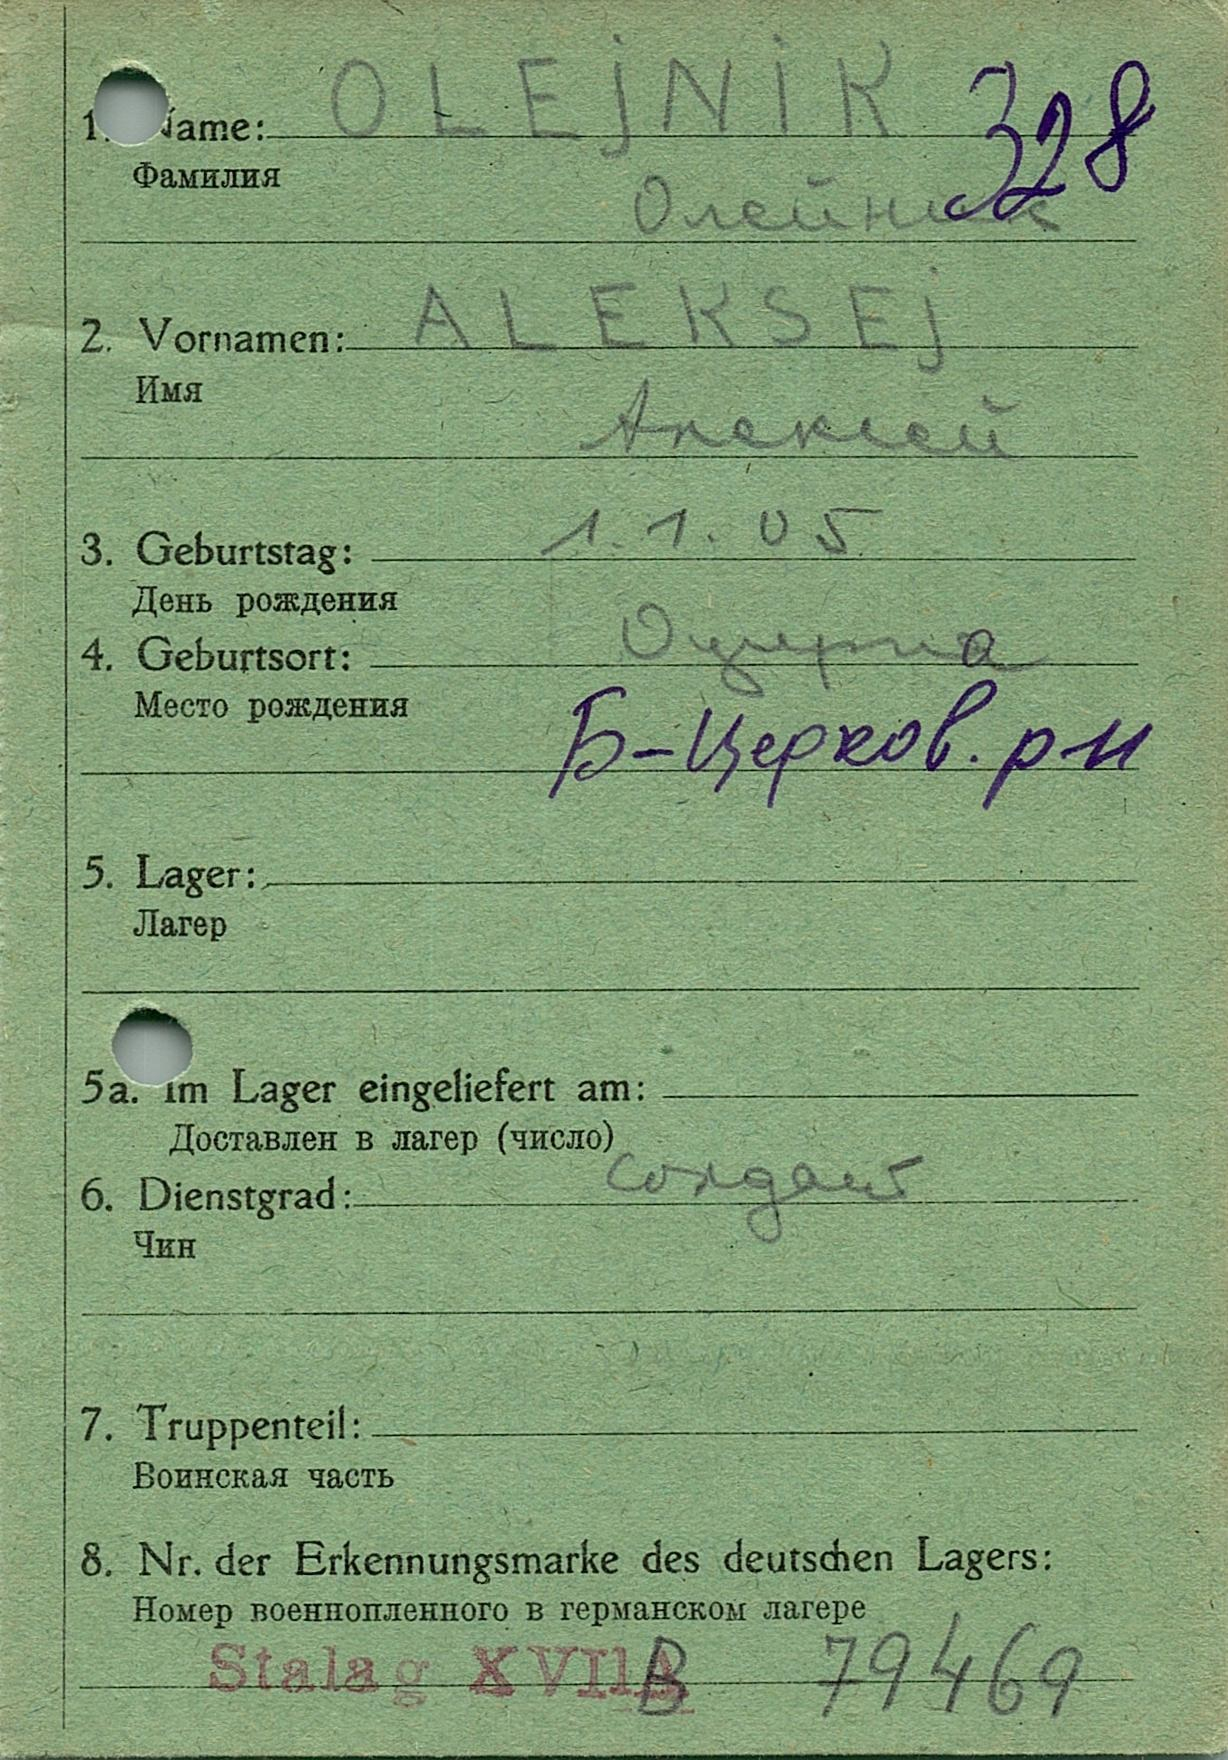 OLEJNIK 328
1. Name:
Фамилия
Олейник
ALEKSEJ
2. Vornamen:
Имя
Алексей
3. Geburtstag: 1.1.05
День рождения
4. Geburtsort:
Место рождения
Б-Церков. р-н
5. Lager:
Лагер
5a. Im Lager eingeliefert am:
Доставлен в лагер (число)
6. Dienstgrad: солдат
Чин
7. Truppenteil:
Воинская часть
8. Nr. der Erkennungsmarke des deutschen Lagers:
Номер военнопленного в германском лагере
Stalag XVII B 79469